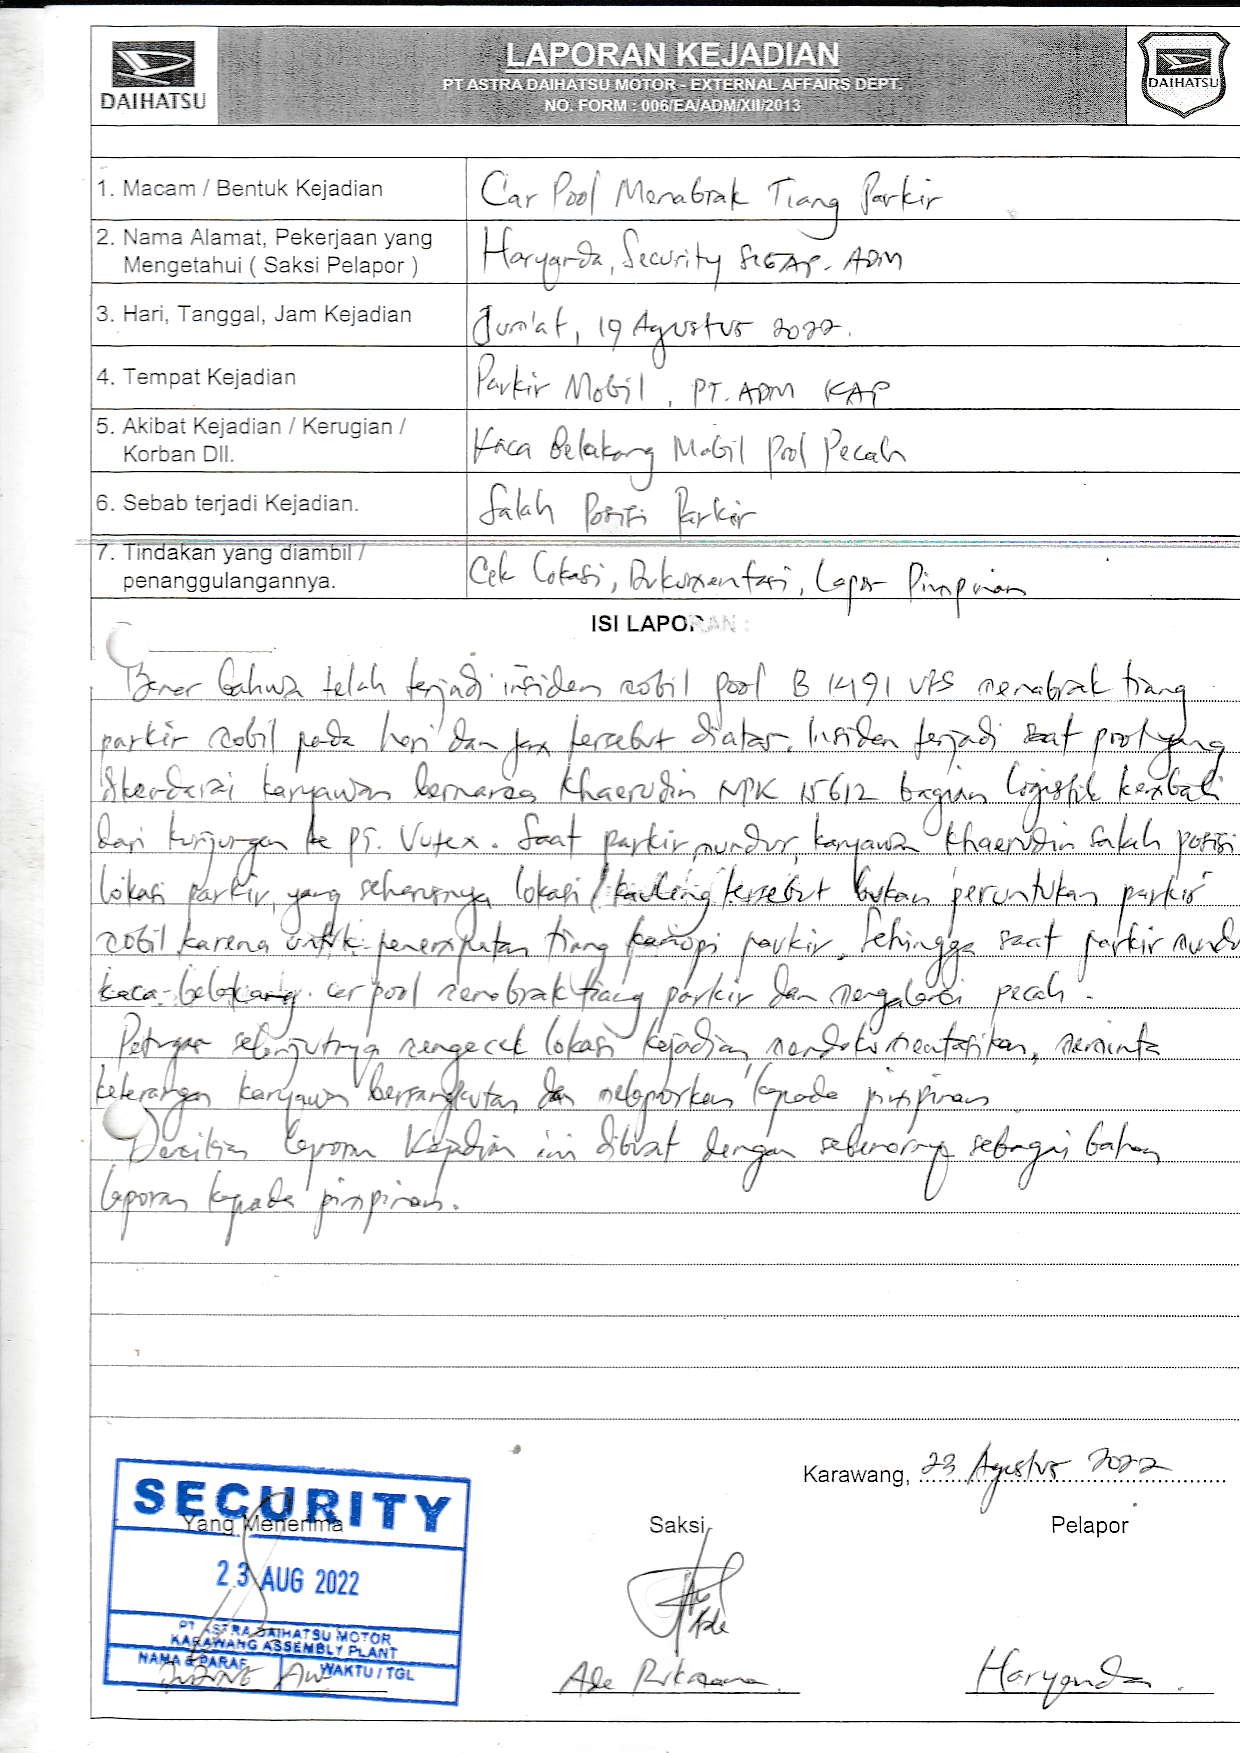 DAIHATSU
LAPORAN KEJADIAN
PT ASTRA DAIHATSU MOTOR - EXTERNAL AFFAIRS DEPT.
NO. FORM : 006/EA/ADM/XII/2013
DAIHATSU
1. Macam / Bentuk Kejadian
Car Pool Menabrak Tiang Parkir
2. Nama Alamat, Pekerjaan yang
Mengetahui ( Saksi Pelapor )
Haryanda, Security SIGAP. ADM
3. Hari, Tanggal, Jam Kejadian
Jum'at, 19 Agustus 2022.
4. Tempat Kejadian
Parkir Mobil, PT. ADM KAP
5. Akibat Kejadian / Kerugian /
Korban Dll.
Kaca Belakang Mobil Pool Pecah
6. Sebab terjadi Kejadian.
Salah Posisi Parkir
7. Tindakan yang diambil /
penanggulangannya.
Cek Lokasi, Dokumentasi, Lapor Pimpinan
ISI LAPORAN :
Benar bahwa telah terjadi insiden mobil pool B 1491 menabrak tiang
parkir mobil pada hari dan jam tersebut diatas. Insiden terjadi saat pool yang
dikendarai karyawan bernama Khaerudin NPK 15612 bagian logistik kembali
dari kunjungan ke PT. Vutex. Saat parkir mundur, karyawan Khaerudin salah posisi
lokasi parkir, yang seharusnya lokasi / kavling tersebut bukan peruntukan parkir
mobil karena untuk penempatan tiang kanopi parkir. Sehingga saat parkir mundu
kaca belakang car pool menabrak tiang parkir dan mengalami pecah.
Petugas selanjutnya mengecek lokasi kejadian, mendokumentasikan, meminta
keterangan karyawan bersangkutan dan melaporkan kepada pimpinan
Demikian laporan Kejadian ini dibuat dengan sebenarnya sebagai bahan
laporan kepada pimpinan.
Karawang, 23 Agustus 2022
SECURITY
Yang Menerima
Saksi
Pelapor
23 AUG 2022
PT ASTRA DAIHATSU MOTOR
KARAWANG ASSEMBLY PLANT
NAMA & PARAF
WAKTU / TGL
Ade
Haryanda